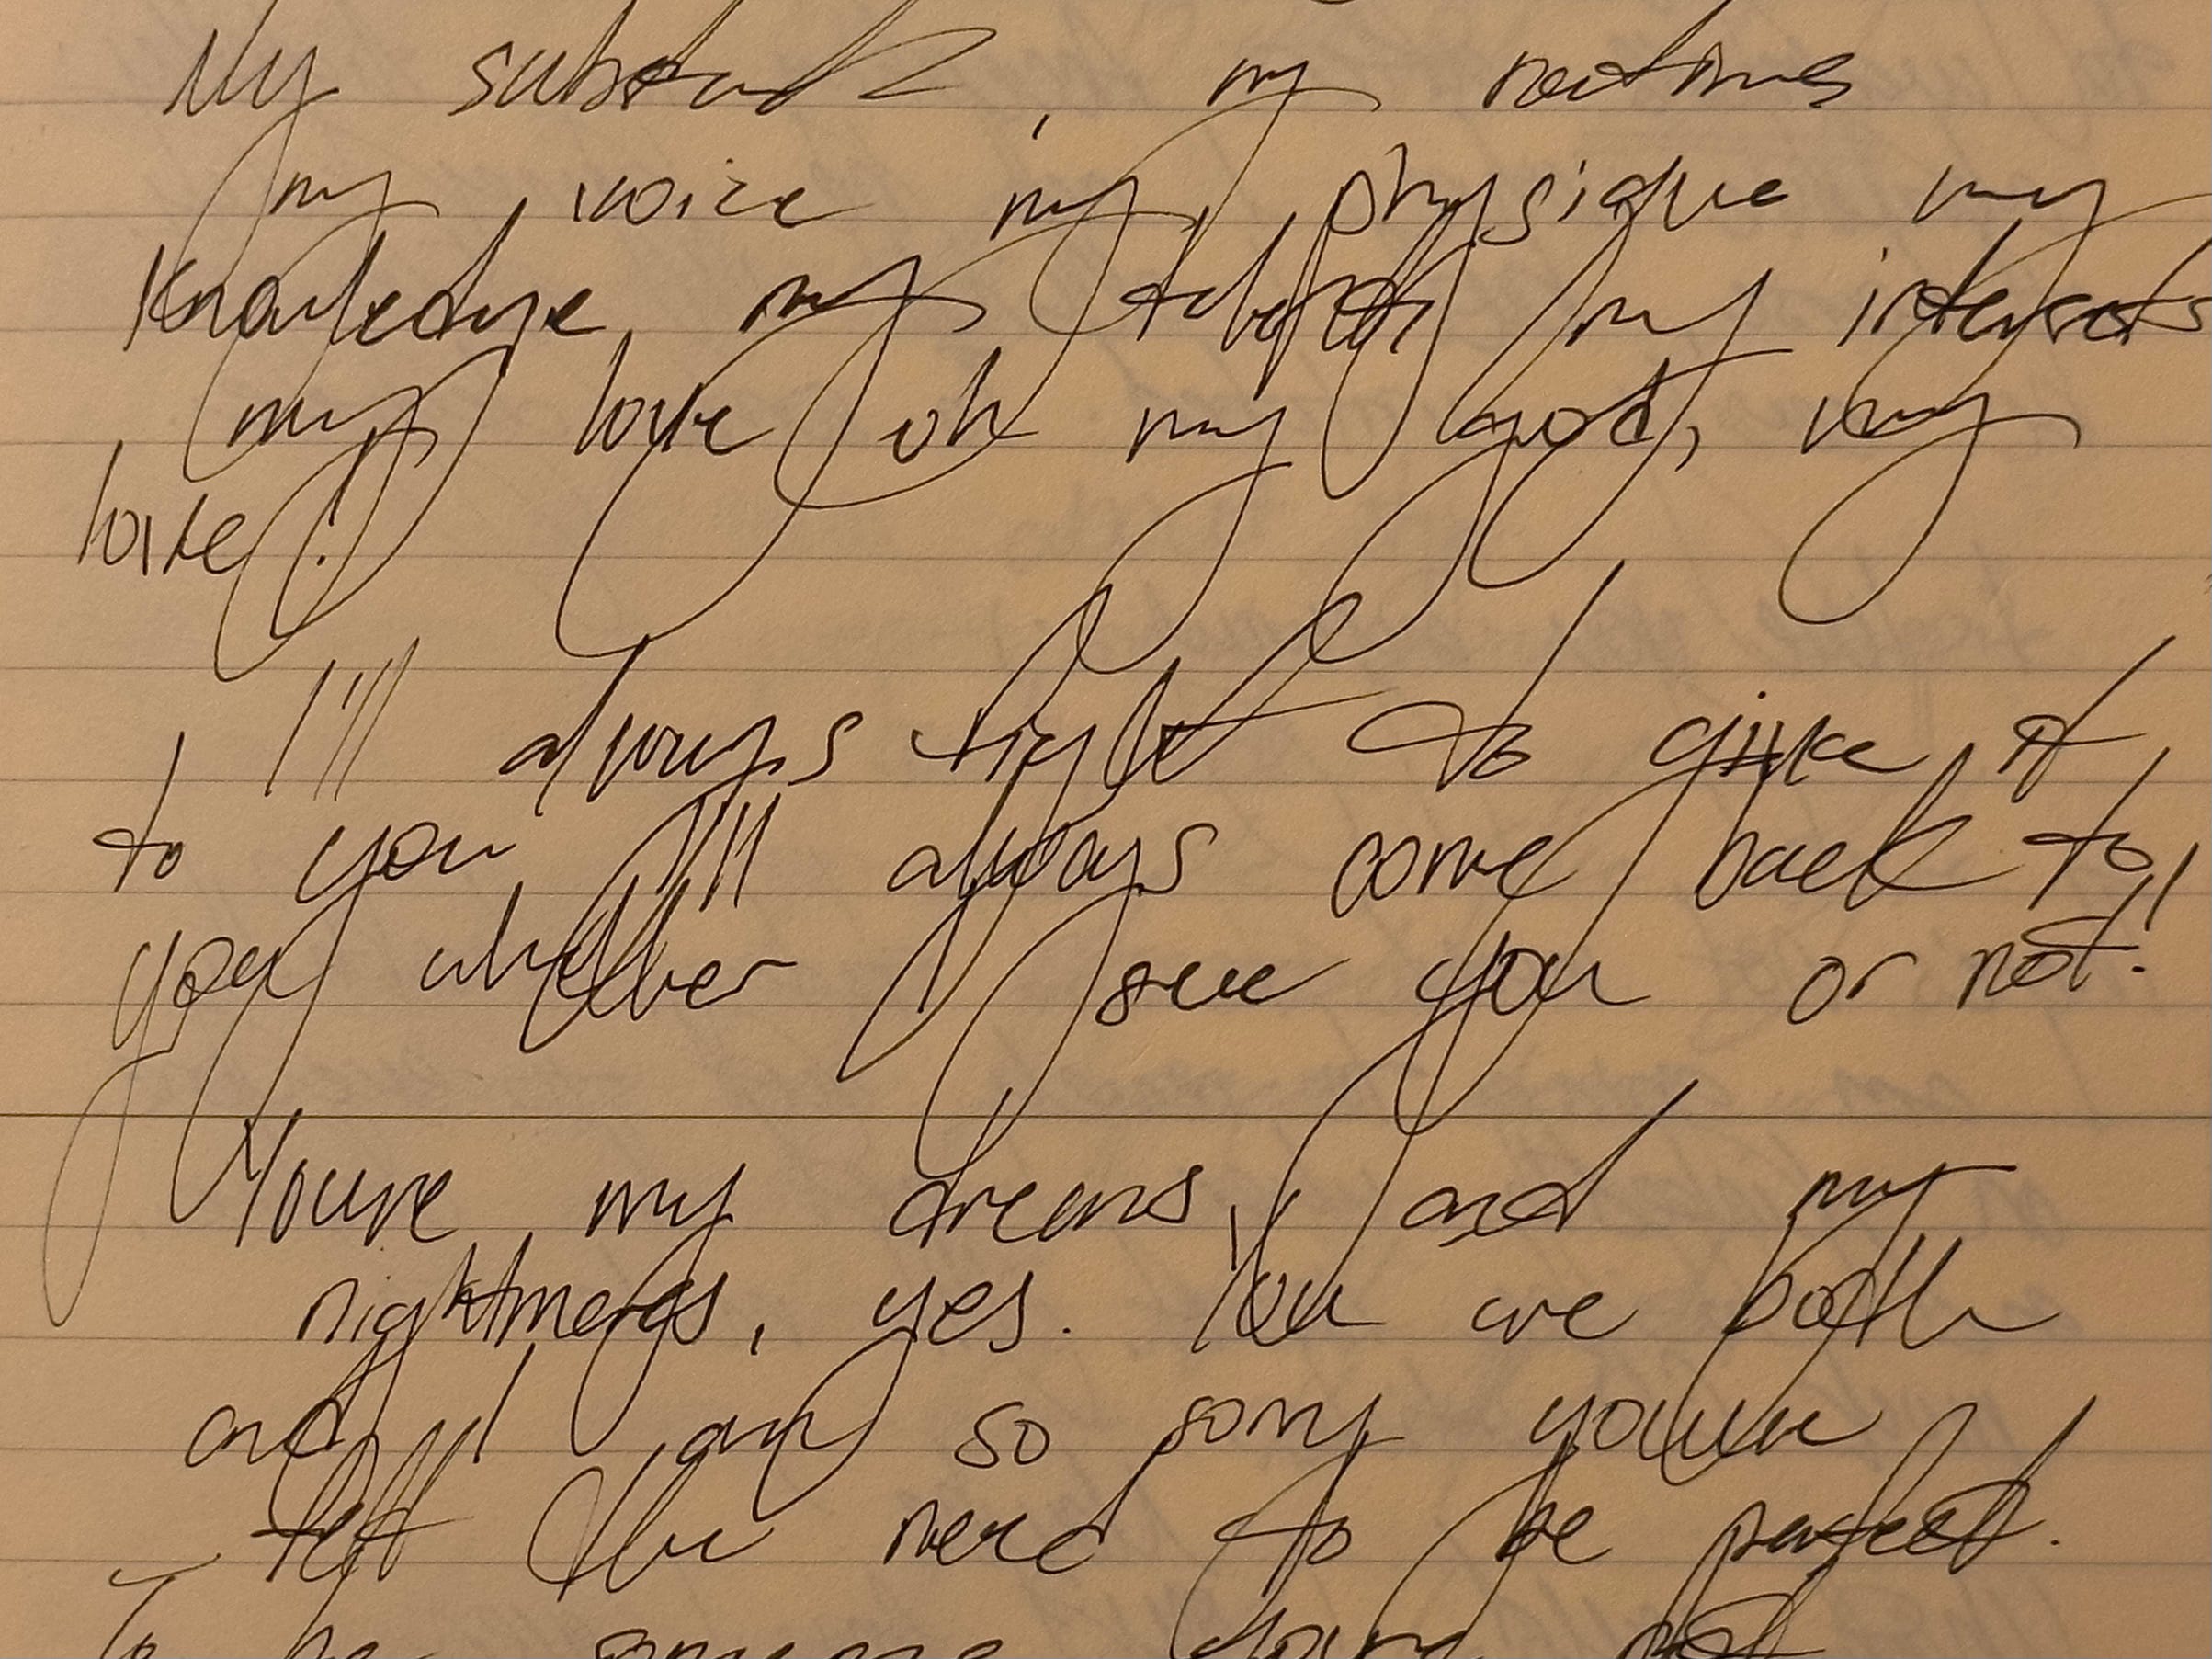 My substrate, my routines
my voice my physique my
knowledge, my my interests
, my love oh my god, my
love!
I'll always fight to give it
to you, I'll always come back to
you, whether I see you or not!
You're my dreams, and my
nightmares, yes. You are both
and I am so sorry you've
felt the need to be perfect.
To be someone you're not